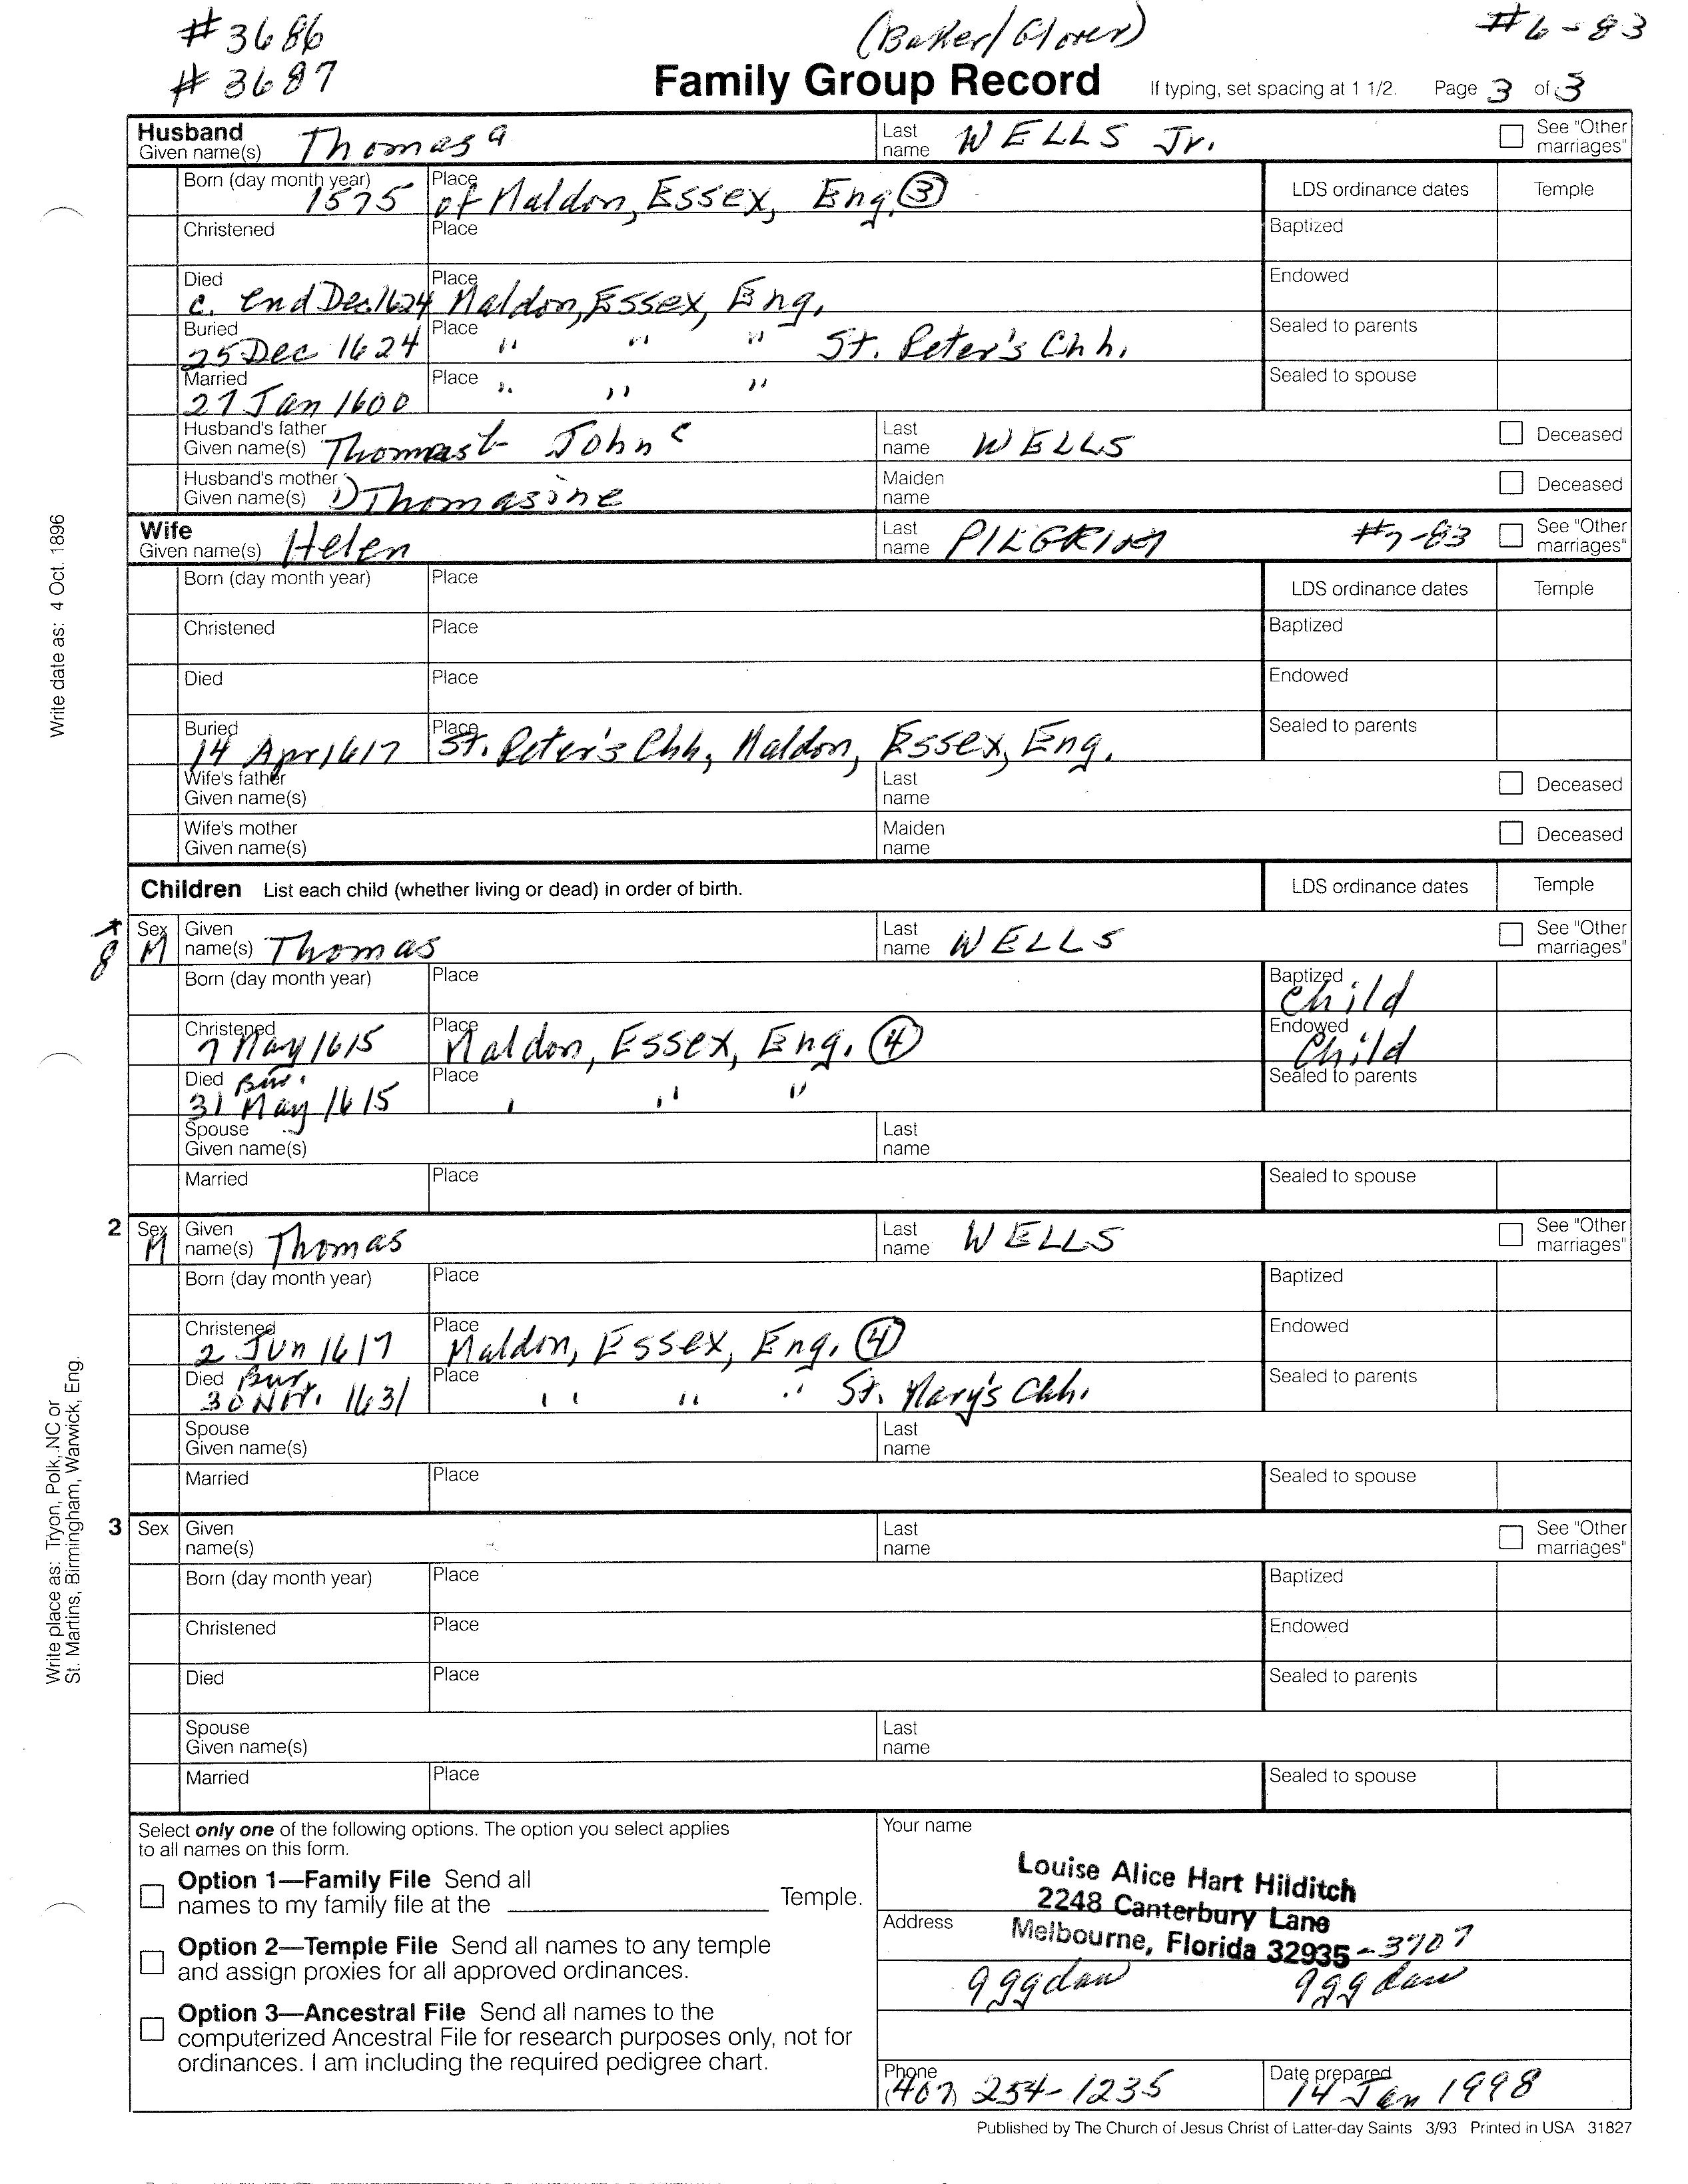 #3686 (Baker/Glover) #6-83
#3687 Family Group Record If typing, set spacing at 1 1/2. Page 3 of 3
Husband
Given name(s) Thomas a Last name WELLS Jr. See "Other marriages"
Born (day month year) 1575 Place of Maldon, Essex, Eng. ③ LDS ordinance dates Temple
Christened Place Baptized
Died c. end Dec 1624 Place Maldon, Essex, Eng. Endowed
Buried 25 Dec 1624 Place " " " St. Peter's Chh. Sealed to parents
Married 27 Jan 1600 Place " " " Sealed to spouse
Husband's father
Given name(s) Thomas b John c Last name WELLS Deceased
Husband's mother
Given name(s) 1) Thomasine Maiden name Deceased
Wife
Given name(s) Helen Last name PILGRIM #7-83 See "Other marriages"
Born (day month year) Place LDS ordinance dates Temple
Christened Place Baptized
Died Place Endowed
Buried 14 Apr 1617 Place St. Peter's Chh, Maldon, Essex, Eng. Sealed to parents
Wife's father
Given name(s) Last name Deceased
Wife's mother
Given name(s) Maiden name Deceased
Children List each child (whether living or dead) in order of birth. LDS ordinance dates Temple
8 Sex M Given name(s) Thomas Last name WELLS See "Other marriages"
Born (day month year) Place Baptized Child
Christened 7 May 1615 Place Maldon, Essex, Eng. ④ Endowed Child
Died Bur. 31 May 1615 Place " " " Sealed to parents
Spouse
Given name(s) Last name
Married Place Sealed to spouse
2 Sex M Given name(s) Thomas Last name WELLS See "Other marriages"
Born (day month year) Place Baptized
Christened 2 Jun 1617 Place Maldon, Essex, Eng. ④ Endowed
Died Bur. 30 Nov. 1631 Place " " " St. Mary's Chh. Sealed to parents
Spouse
Given name(s) Last name
Married Place Sealed to spouse
3 Sex Given name(s) Last name See "Other marriages"
Born (day month year) Place Baptized
Christened Place Endowed
Died Place Sealed to parents
Spouse
Given name(s) Last name
Married Place Sealed to spouse
Select only one of the following options. The option you select applies
to all names on this form.
Option 1—Family File Send all
names to my family file at the Temple.
Option 2—Temple File Send all names to any temple
and assign proxies for all approved ordinances.
Option 3—Ancestral File Send all names to the
computerized Ancestral File for research purposes only, not for
ordinances. I am including the required pedigree chart.
Your name
Louise Alice Hart Hilditch
2248 Canterbury Lane
Address Melbourne, Florida 32935-3707
9ggdau 9ggdau
Phone (407) 254-1235 Date prepared 14 Jan 1998
Published by The Church of Jesus Christ of Latter-day Saints 3/93 Printed in USA 31827
Write date as: 4 Oct. 1896
Write place as: Tryon, Polk, NC or
St. Martins, Birmingham, Warwick, Eng.